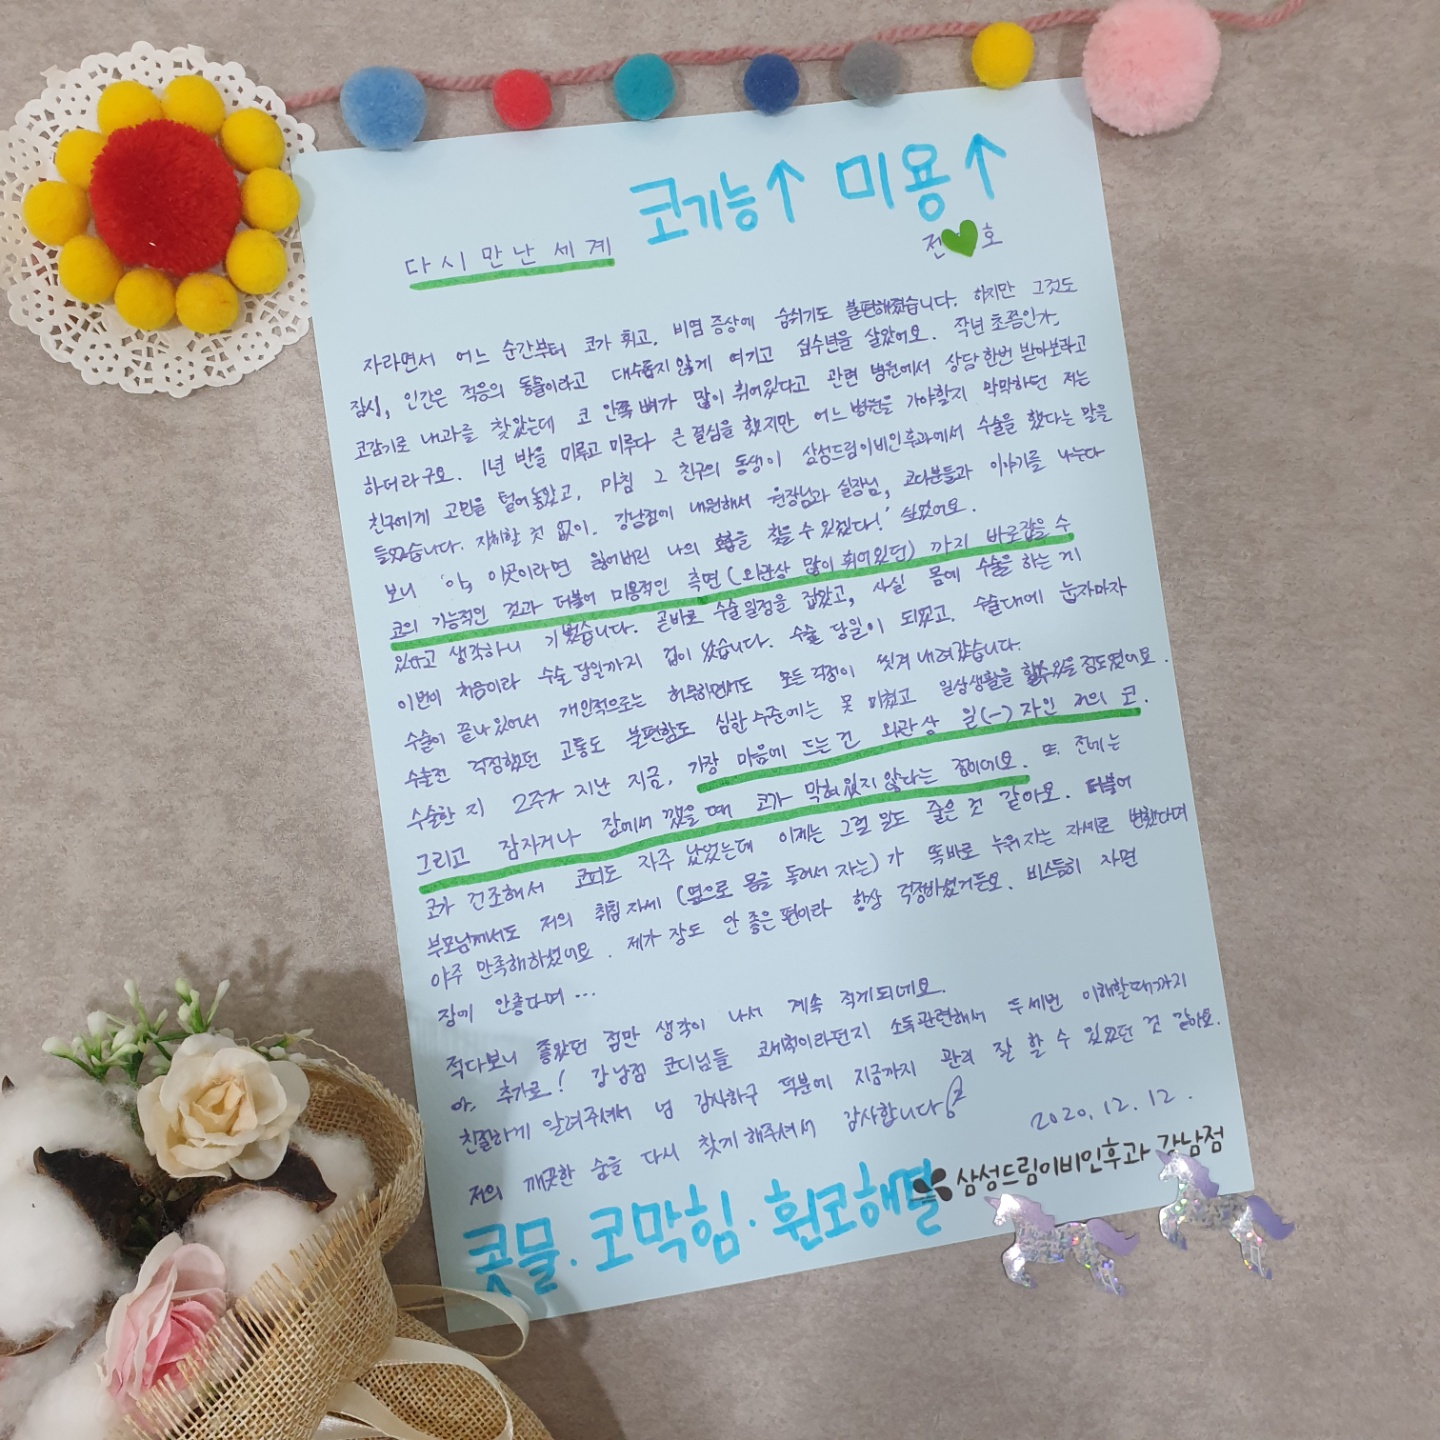 코기능↑ 미용↑
다시 만난 세계
전💚호
자라면서 어느 순간부터 코가 휘고, 비염 증상에 숨쉬기도 불편해졌습니다. 하지만 그것도
잠시, 인간은 적응의 동물이라고 대수롭지 않게 여기고 십수년을 살았어요. 작년 초쯤인가,
코감기로 내과를 찾았는데 코 안쪽 뼈가 많이 휘어있다고 관련 병원에서 상담 한번 받아보라고
하더라구요. 1년 반을 미루고 미루다 큰 결심을 했지만 어느 병원을 가야할지 막막하던 저는
친구에게 고민을 털어놓았고, 마침 그 친구의 동생이 삼성드림이비인후과에서 수술을 했다는 말을
들었습니다. 지체할 것 없이. 강남점에 내원해서 원장님과 실장님, 코디분들과 이야기를 나눈다
보니 '아, 이곳이라면 잃어버린 나의 숨을 찾을 수 있겠다!' 싶었어요.
코의 기능적인 것과 더불어 미용적인 측면(외관상 많이 휘어있던) 까지 바로잡을 수
있다고 생각하니 기뻤습니다. 곧바로 수술일정을 잡았고, 사실 몸에 수술을 하는 게
이번이 처음이라 수술 당일까지 겁이 났습니다. 수술 당일이 되었고. 수술대에 눕자마자
수술이 끝나있어서 개인적으로는 허무하면서도 모든 걱정이 씻겨 내려갔습니다.
수술전 걱정했던 고통도 불편함도 심한 수준에는 못 미쳤고 일상생활을 할수있을 정도였어요.
수술한 지 2주가 지난 지금, 가장 마음에 드는 건 외관상 일(一)자인 저의 코.
그리고 잠자거나 잠에서 깼을 때 코가 막혀있지 않다는 점이에요. 또 전에는
코가 건조해서 코피도 자주 났었는데 이제는 그럴 일도 줄은 것 같아요. 더불어
부모님께서도 저의 취침 자세 (옆으로 몸을 돌려서 자는)가 똑바로 누워 자는 자세로 변했다며
아주 만족해하셨어요. 제가 잠도 안 좋은 편이라 항상 걱정하셨거든요. 비스듬히 자면
잠에 안좋다며...
적다보니 좋았던 점만 생각이 나서 계속 적게되네요.
아, 추가로! 강남점 코디님들 코세척이라던지 소독관련해서 두세번 이해할때까지
친절하게 알려주셔서 넘 감사하구 덕분에 지금까지 관리 잘 할 수 있었던 것 같아요.
저의 깨끗한 숨을 다시 찾게 해주셔서 감사합니다
2020. 12. 12.
삼성드림이비인후과 강남점
콧물. 코막힘. 휜코해결